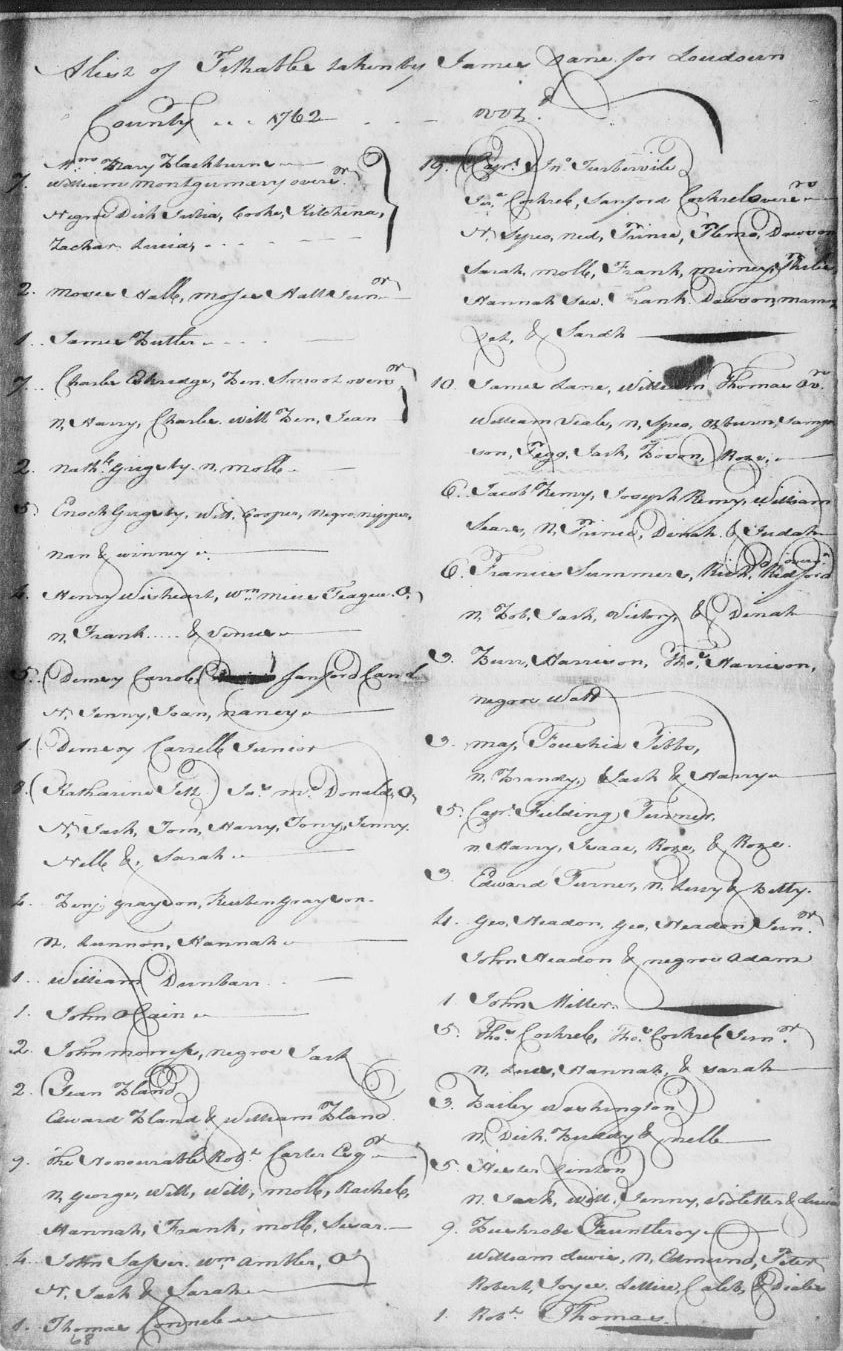 A List of Tithables taken by James Lane for Loudoun
County ... 1762
7. Mrs Mary Blackburn
William Montgumery over.
Negroe Dick Julia, Cooke, Kitchena,
Zachar Lucia,
2. Moses Hall, Moses Hall Junor
1. James Butler
7. Charles Eskridge, Ben. Smoot over
n, Harry, Charles Will Ben, Jean
2. Nathl Grigsby n. Moll
5. Enoch Grigsby, Will. Cooper, Negroe
nan & winney
4. Henry Wisheart, Wm Teague. O,
n, Frank & Venus
5. Demcy Carrell Sanford Carrel
N. Jenny, Joan, nancy
1. Demcy Carrell Junior
8. Katharine Jas Mc Donald, O,
N, Jack, Tom, Harry, Tony, Jenny.
Nell &, Sarah
4. Benj. Grayson, Reuben Grayson.
N. Lunnon, Hannah
1. William Dunbarr
1. John OCain
2. John morriss, negroe Jack
2. Jean Bland
Edward Bland & William Bland
9. The Honourable Robt Carter Esqr
n, George, Will, Will, moll, Rachel,
Hannah, Frank, moll, Susar.
4. John Jasper. Wm Ambler, O
N. Jack & Sarah
1. Thomas Connel
68
19. Capt. Jno Turbervile
Jas Cockrel, Sanford Cockrel over
N, Sypeo, ned, Prince, Dawson
Sarah, moll, Frank, mimey, Phebe
Hannah Frank Dawson,
& Sarah
10. James Lane, William Thomas Or.
William Veale, n, Speo, Osburn, Samp
son, Pegg, Jack, Bovon, Rose,
6. Jacob Remy, Joseph Remy, William
Sears, N, Prince, Dinah & Judah
6. Francis Summers, Richd Redford
n, Bob, Jack, Victory, & Dinah
3. Burr, Harrison, Thos Harrison,
negroe Watt
3. maj, Foushie Tebbs,
n, Brandy, Jack & Harry
5. Capt Fielding Turner.
n Harry, Isaac, Rose, & Rose.
3. Edward Turner, n, & Betty.
4. Geo, Headon, Geo, Headon Junor
John Headon & negroe Adam
1 John Miller
5. Thos Cockrel, Thos Cockrel Junor
n, Luce, Hannah, & Sarah
3. Bailey Washington
n, Dick. Buddy & nell
5. Hester Linton
n. Jack, Will, Jenny, Violetter &
9. Bushrode Fauntleroy
William Lewis, n, Edmund, Peter
Robert, Joyce, Lettice, Caleb, &
1. Robt Thomas.